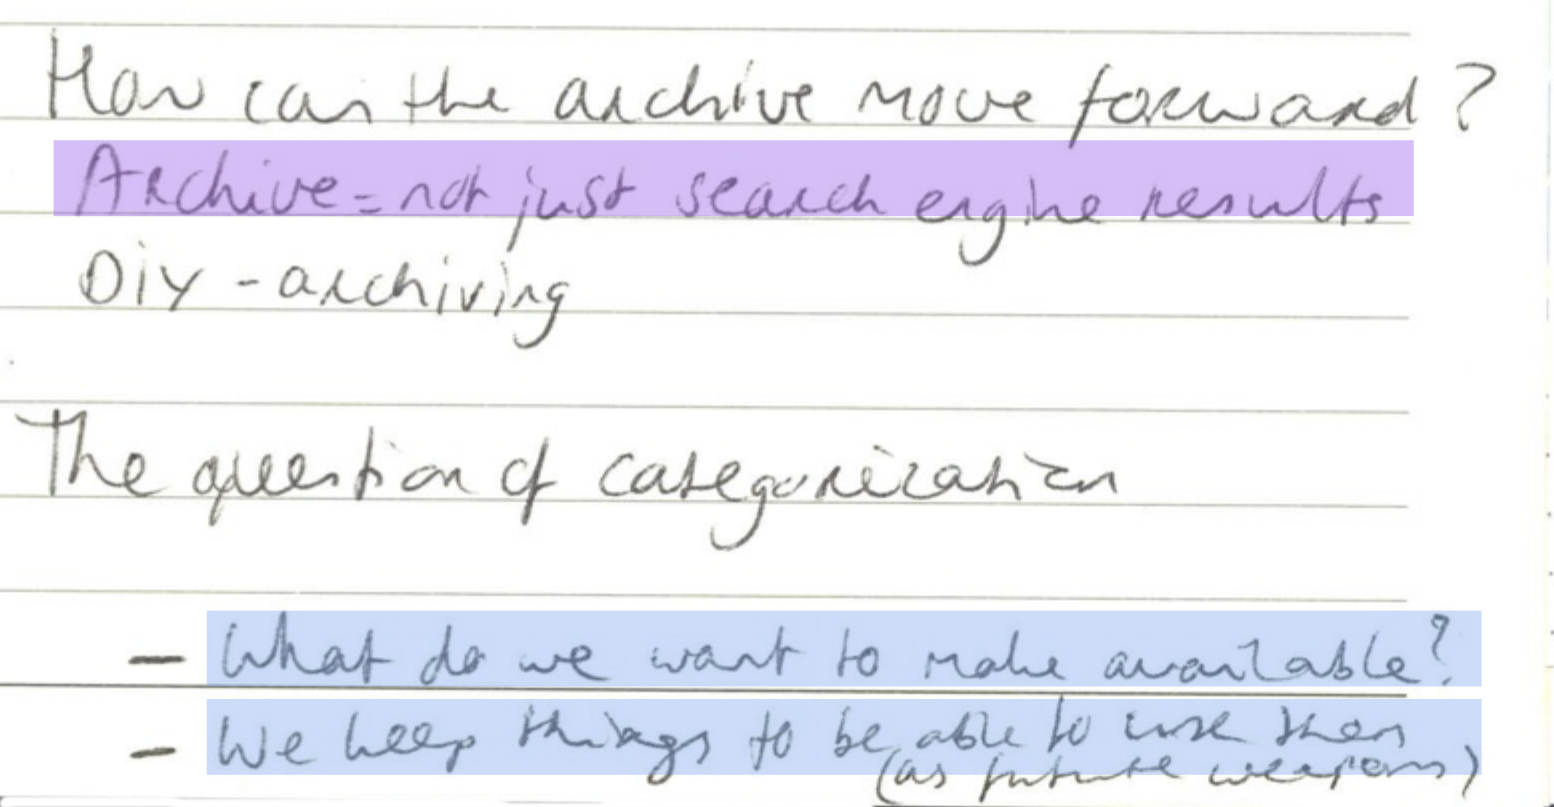 How can the archive move forward?
Archive = not just search engine results
DiY - archiving
The question of categorization
- What do we want to make available?
- We keep things to be able to use them
(as future weapons)